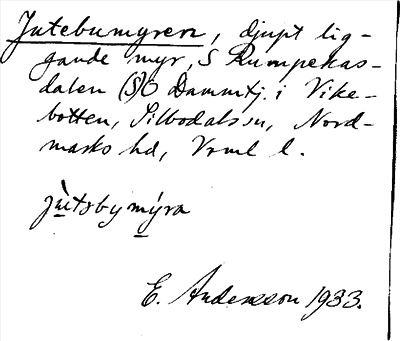 Jutebumyren, djupt lig-
gande myr, S Rumpekas-
dalen (S)O Dammtj. i Vike-
botten, Silbodals sn, Nord-
marks hd, Vrml l.
jùtsbymýra
E. Andersson 1933.